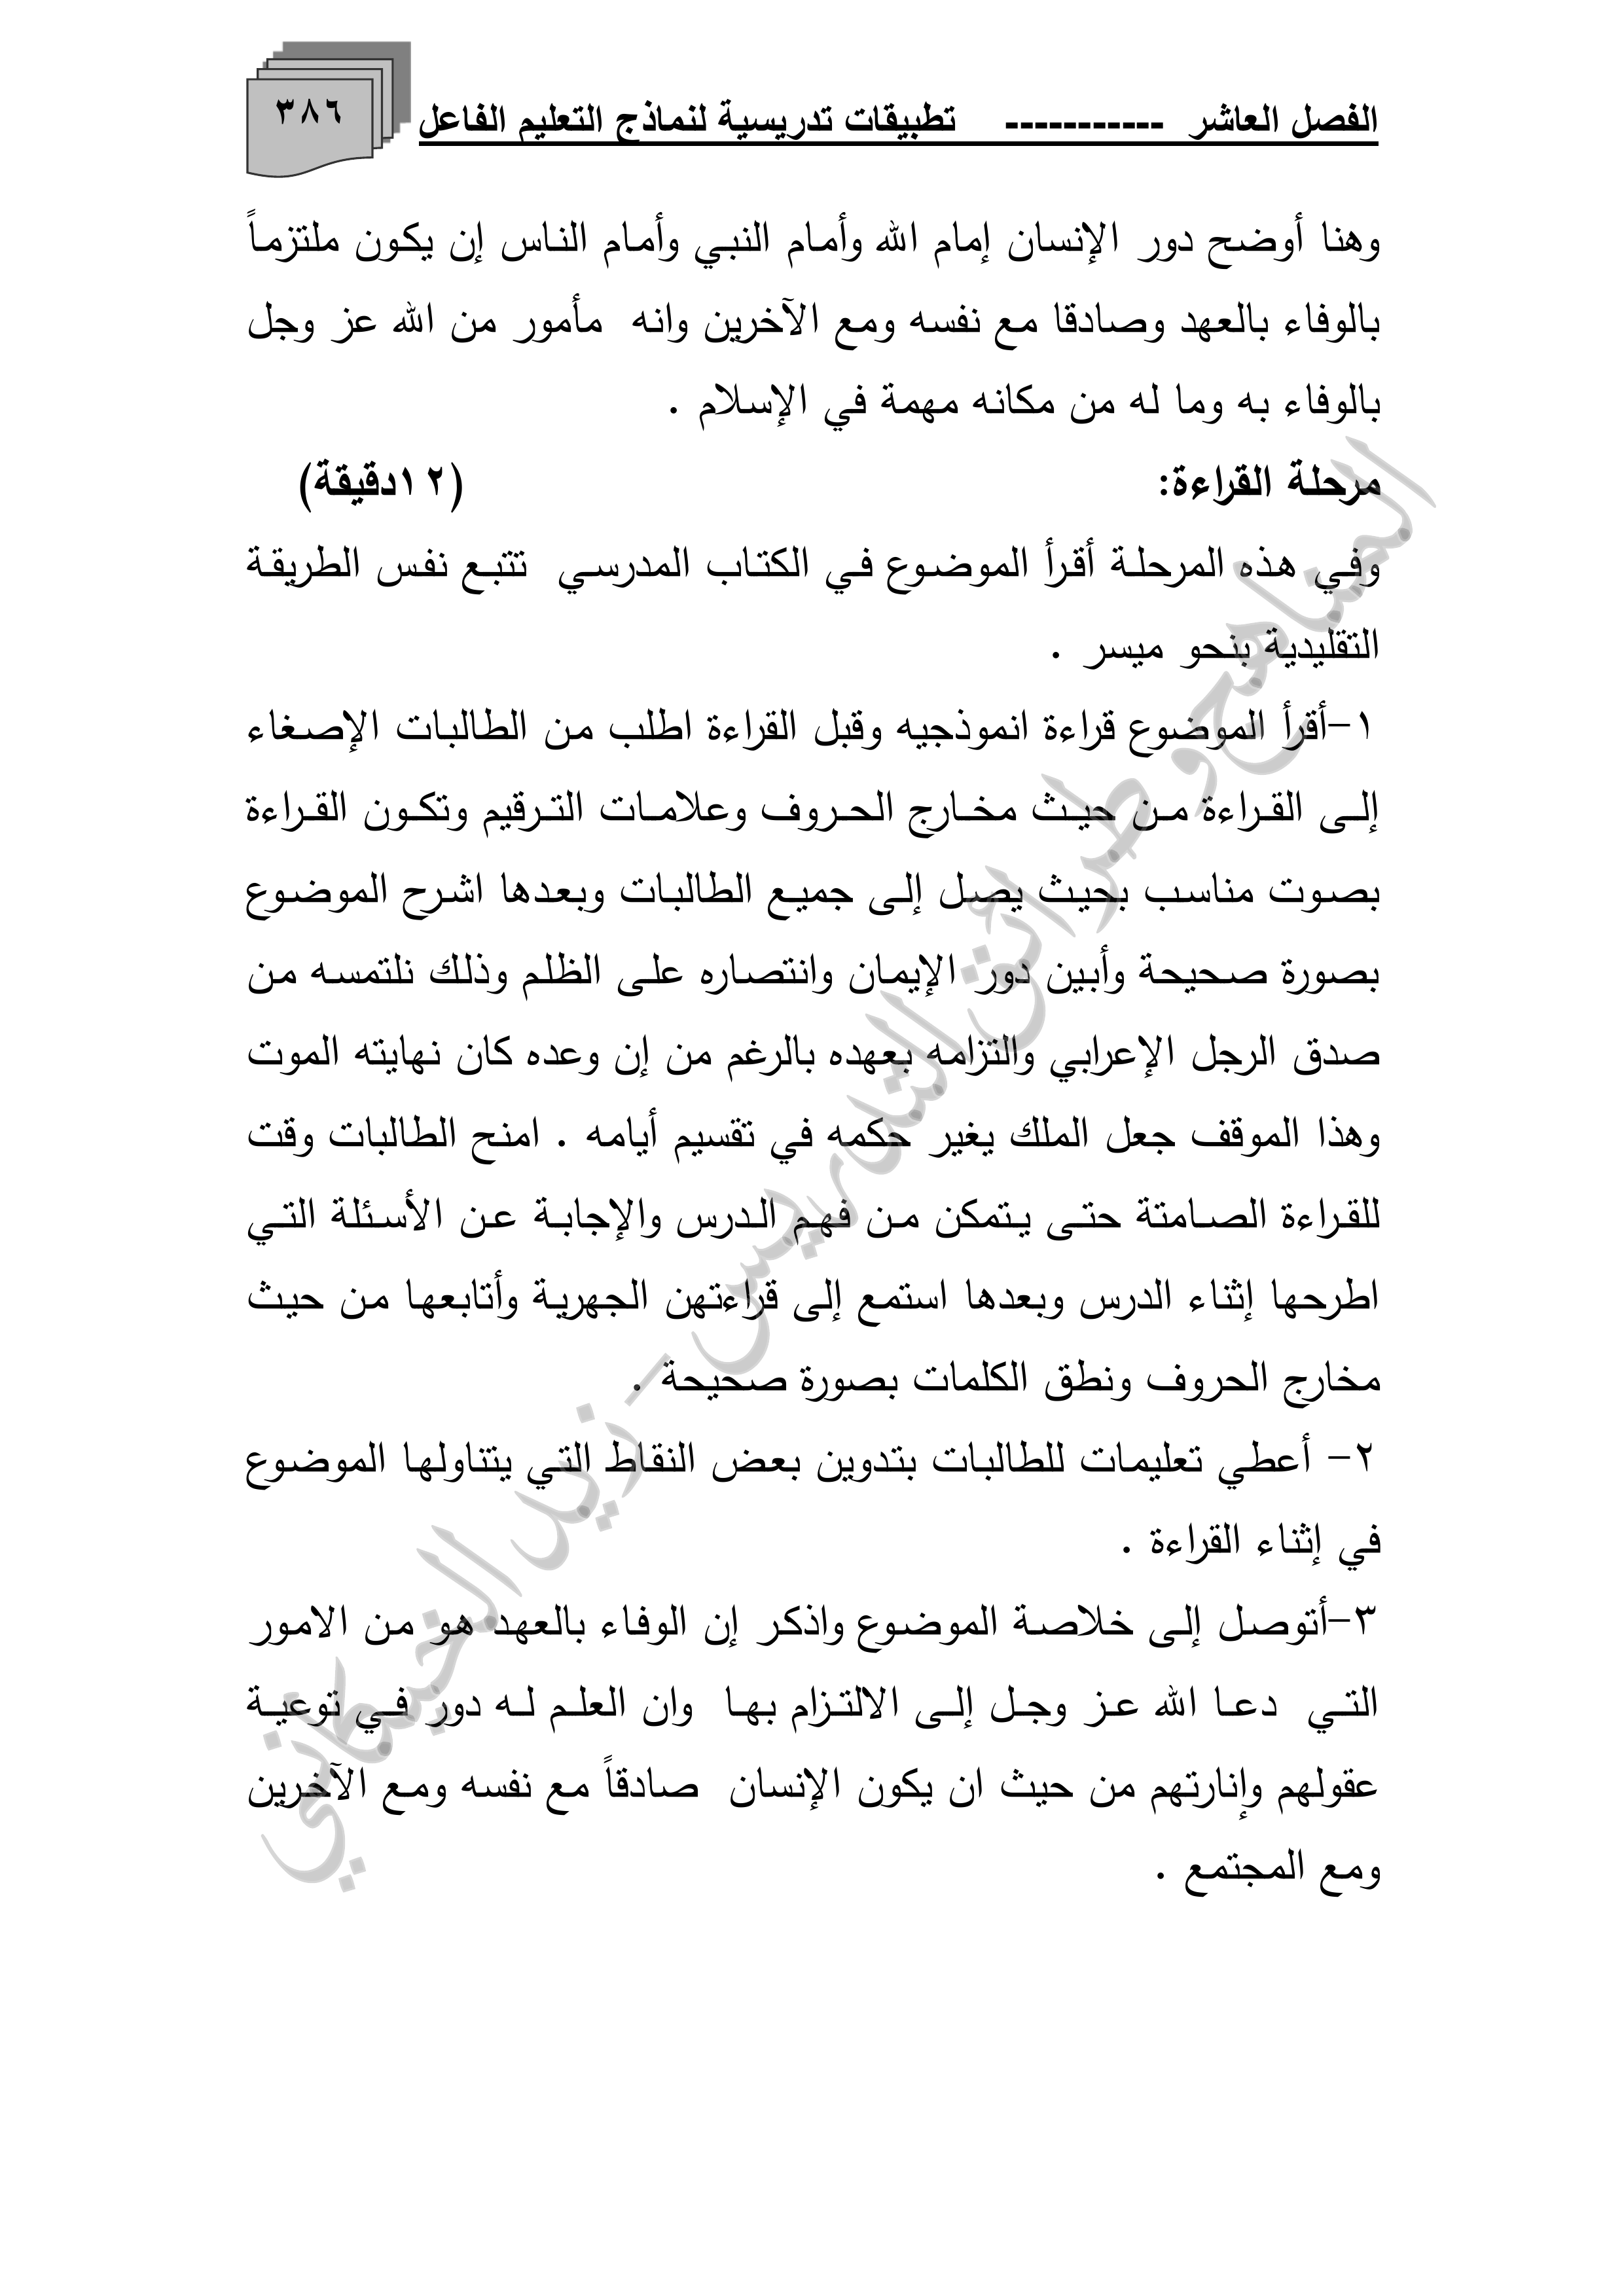 الفصل العاشر ----------- تطبيقات تدريسية لنماذج التعليم الفاعل
٣٨٦
وهنا أوضح دور الإنسان إمام الله وأمام النبي وأمام الناس إن يكون ملتزماً
بالوفاء بالعهد وصادقا مع نفسه ومع الآخرين وانه مأمور من الله عز وجل
بالوفاء به وما له من مكانه مهمة في الإسلام .
مرحلة القراءة: (١٢دقيقة)
وفي هذه المرحلة أقرأ الموضوع في الكتاب المدرسي تتبع نفس الطريقة
التقليدية بنحو ميسر .
١-أقرأ الموضوع قراءة انموذجيه وقبل القراءة اطلب من الطالبات الإصغاء
إلى القراءة من حيث مخارج الحروف وعلامات الترقيم وتكون القراءة
بصوت مناسب بحيث يصل إلى جميع الطالبات وبعدها اشرح الموضوع
بصورة صحيحة وأبين دور الإيمان وانتصاره على الظلم وذلك نلتمسه من
صدق الرجل الإعرابي والتزامه بعهده بالرغم من إن وعده كان نهايته الموت
وهذا الموقف جعل الملك يغير حكمه في تقسيم أيامه . امنح الطالبات وقت
للقراءة الصامتة حتى يتمكن من فهم الدرس والإجابة عن الأسئلة التي
اطرحها إثناء الدرس وبعدها استمع إلى قراءتهن الجهرية وأتابعها من حيث
مخارج الحروف ونطق الكلمات بصورة صحيحة .
٢- أعطي تعليمات للطالبات بتدوين بعض النقاط التي يتناولها الموضوع
في إثناء القراءة .
٣-أتوصل إلى خلاصة الموضوع واذكر إن الوفاء بالعهد هو من الامور
التي دعا الله عز وجل إلى الالتزام بها وان العلم له دور في توعية
عقولهم وإنارتهم من حيث ان يكون الإنسان صادقاً مع نفسه ومع الآخرين
ومع المجتمع .
المناهج وطرائق التدريس - زيد الخيكاني